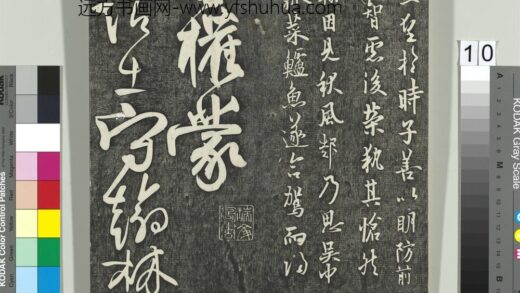 远方书画网-www.yfshuhua.com
於時子善以明防前
智慮後榮執其愴然
因見秋風起乃思吳中
菜鱸魚遂命駕而歸
權蒙
士守翰林
10
KODAK Gray Scale
A
M
KODAK Color Control Patches